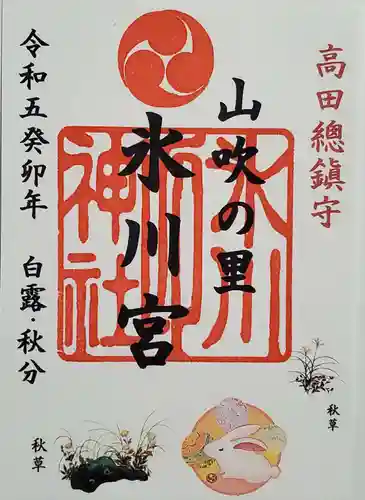 高田總鎮守
山吹の里
氷川宮
氷川神社
令和五癸卯年 白露・秋分
秋草
秋草